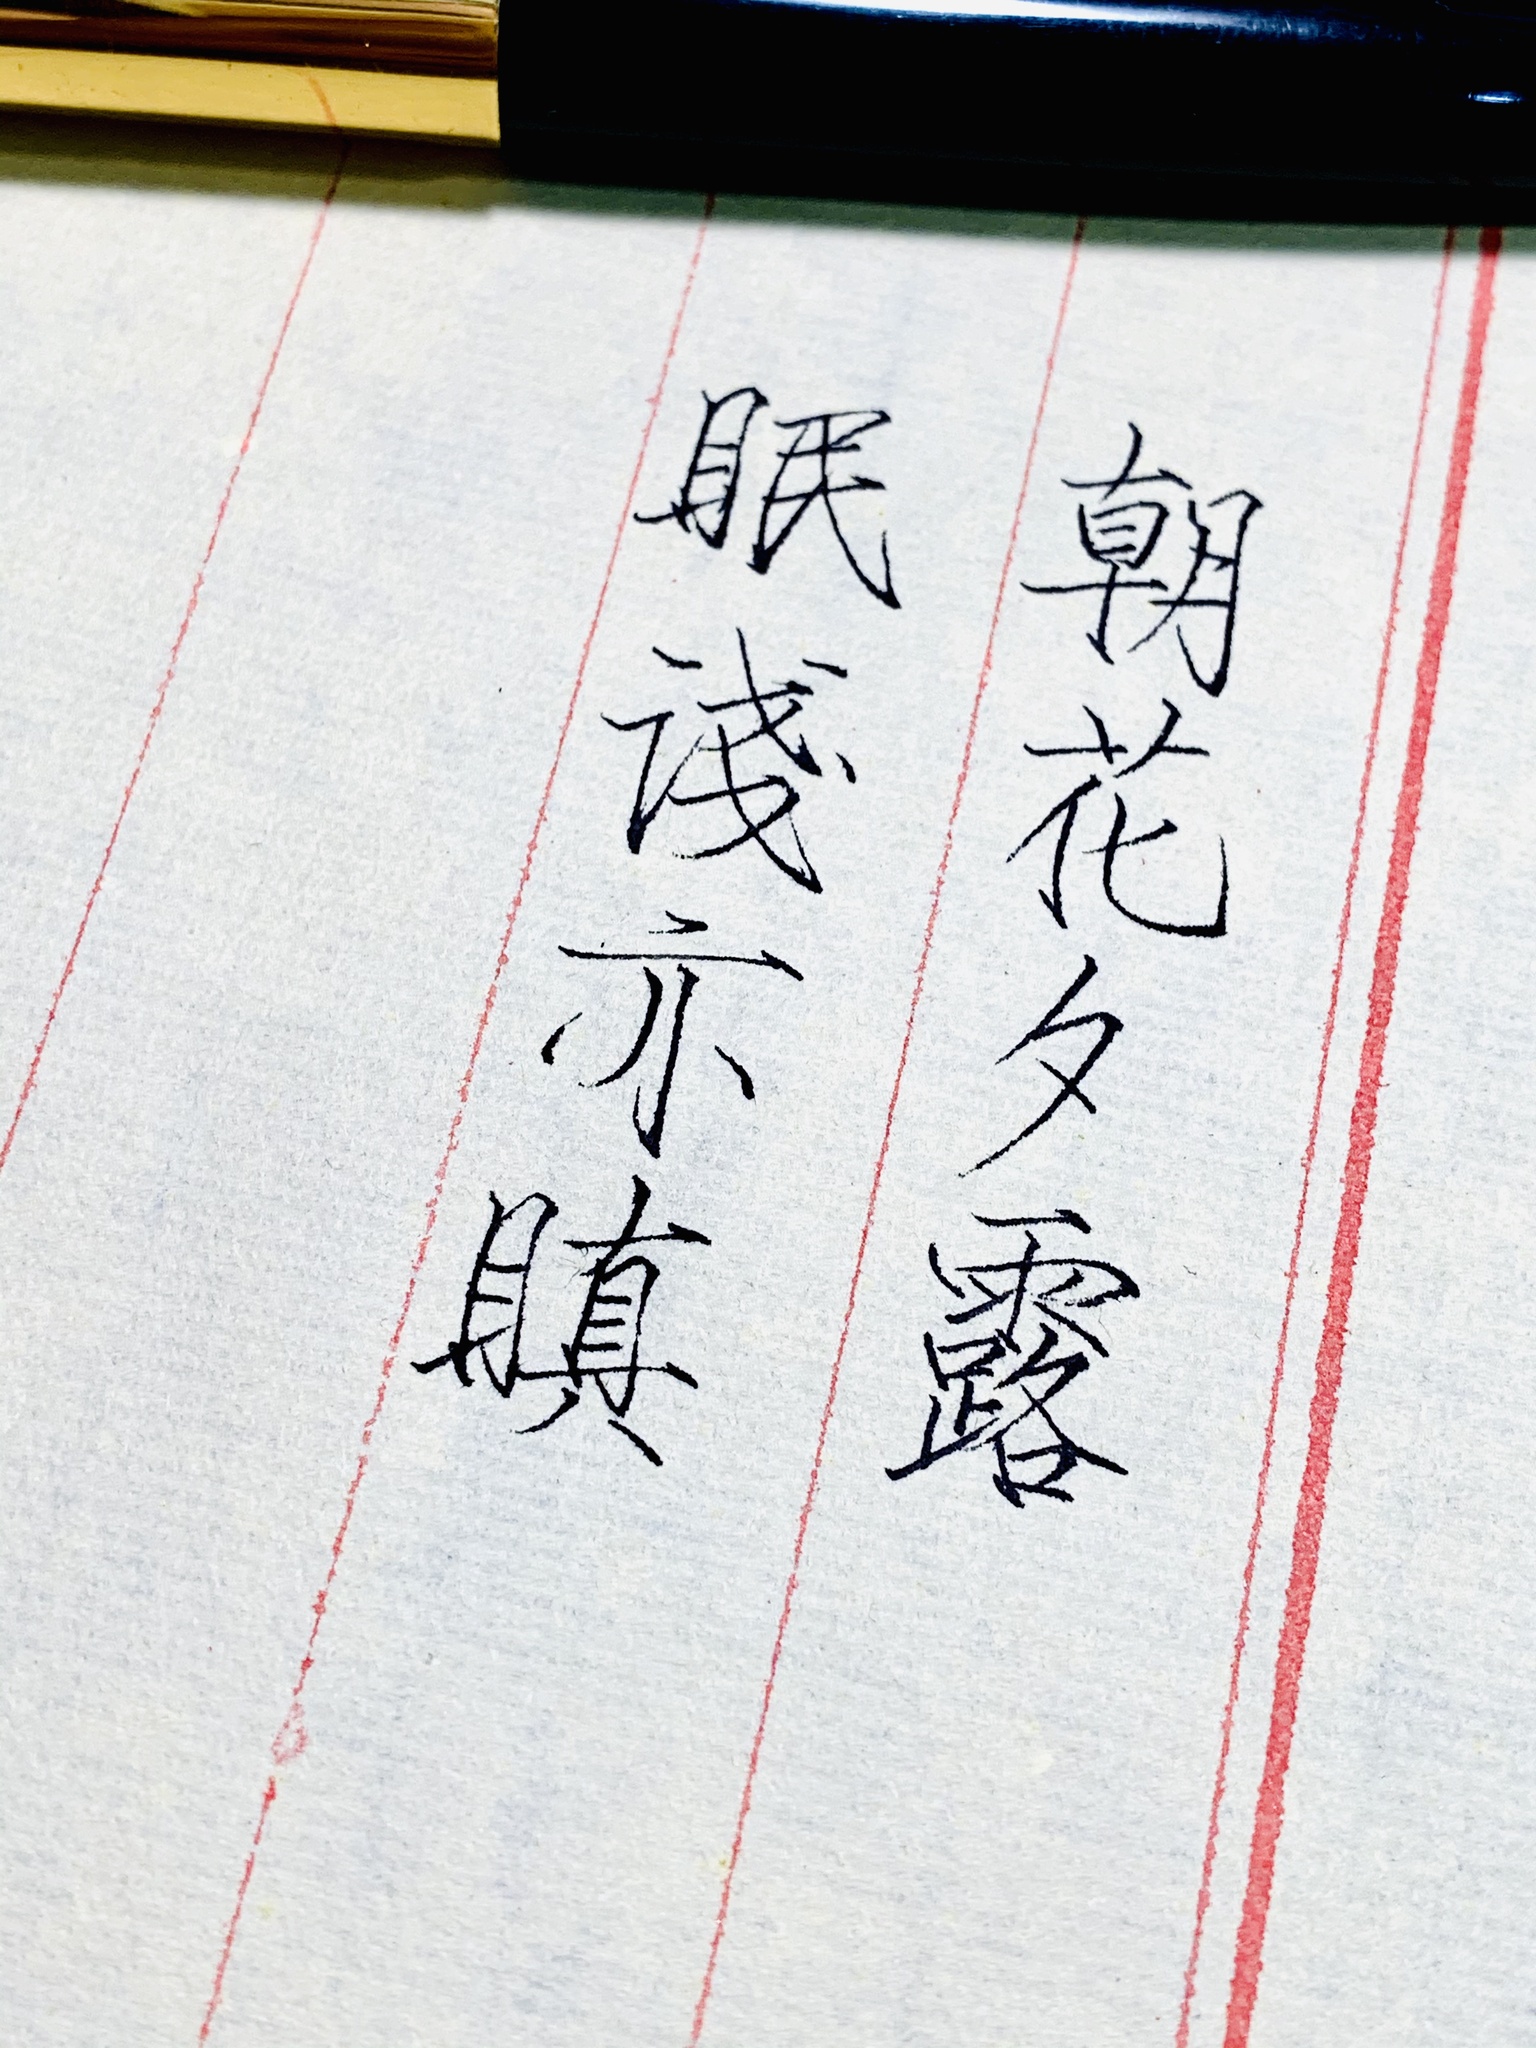 朝花夕露
眠淺亦瞋